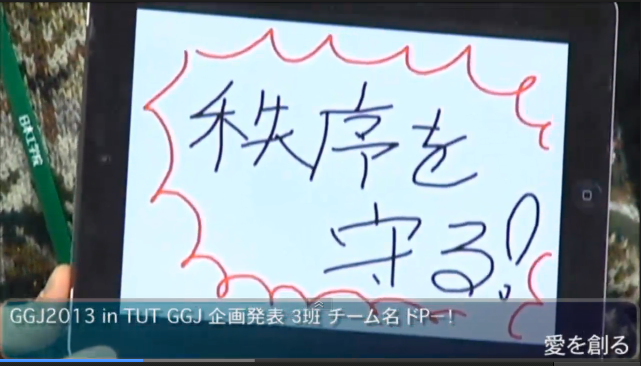 日本工学院
秩序を
守る!
GGJ2013 in TUT GGJ 企画発表 3班 チーム名 ドPー!
愛を創る